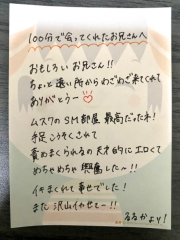 100分で会ってくれたお兄さんへ
おもしろいお兄さん!!
ちょと遠い所からわざわざ来てくれて
ありがとうー♡
ムスクのSM部屋 最高だったネ!
手足こうそくされて
責めまくられるの天才的にエロくて
めちゃめちゃ興奮したー!!
イキまくれて幸せでした!
また沢山イかせてー!!
るるかより!